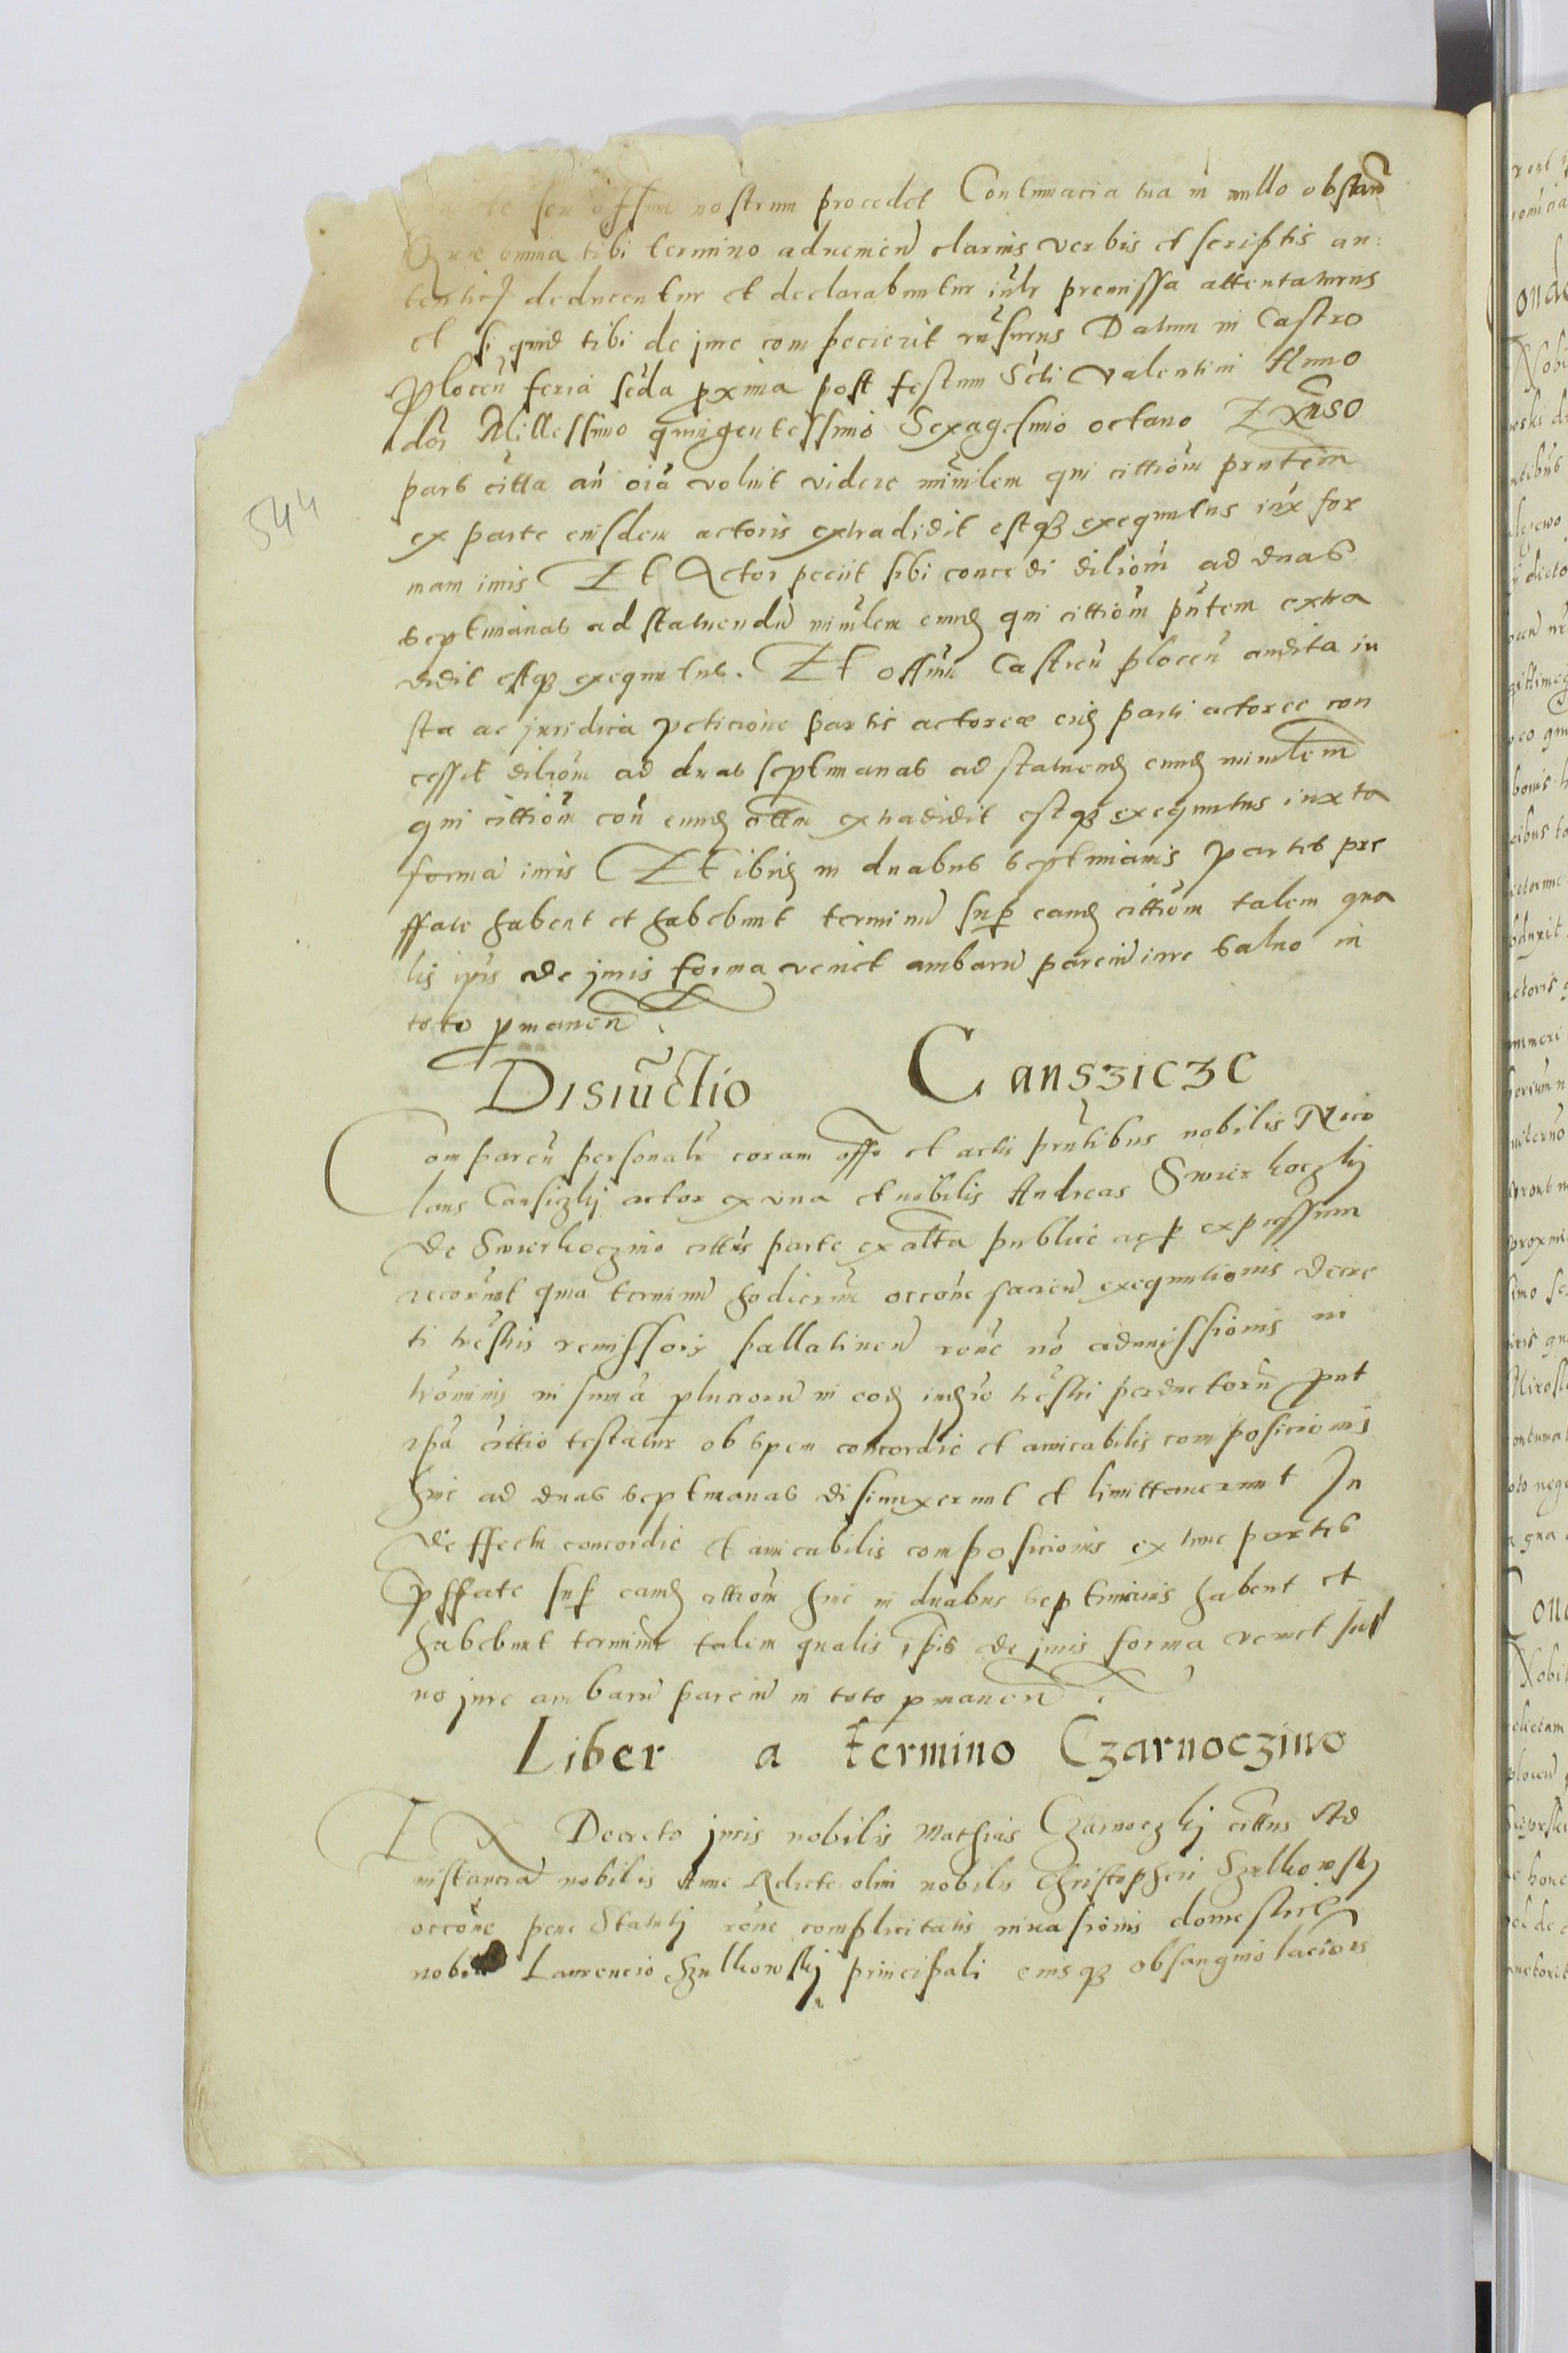 te seu offim nostrum procedet Contumacia tua in nullo obstan
Quæ omnia tibi termino advenien clarius verbis et scriptis au:
tenticis deducentur et declarabuntur iūlr premissa attentaturus
et si quid tibi de jure compecierit rūsurus Datum in Castro
Plocen̄ feria scd̄a pxima post festum Scti Valentini Anno
dōi Millessimo quingentessimo Sexagesimo octavo Ex quo
pars citta an̄ oīa voluit videre minr̄lem qui cittiom prntem
ex parte eiusdem actoris extradidit estq3 exequutus iux for
mam iuris Et Actor peciit sibi concedi dilioīm ad duas
septimanas ad statuendū minr̄lem eund qui cittiom pn̄tem extra
didit estq3 exequutus. Et offium Castren̄ plocen̄ audita iu
sta ac juridica peticione partis actoreæ eid parti actoree con
cessit diliom ad duas septimanas ad statuend eund minrlem
qui cittiom con̄ eund cittm extradidit estq3 exequutus iuxta
forma iuris Et ibid in duabus septimanis partes pre
ffate habent et habebunt terminū sup eand cittiom talem qua
lis ipis de juris forma veniet ambarū parciū iure salvo in
toto pmanen̄
Disiūctio Cansziczc
Comparen̄ personalr coram offo et actis prn̄tibus nobilis Nico
laus Cansiczkij actor ex una et nobilis Andreas Swierkoczkij
de Swierkoczino cittus parte ex altā publice ac p expressum
recorūnt quia terminū hodiernū occōne facien̄ exequutionis decre
ti trēstris remissorij pallatinen̄ rōne nō admissionis in
trōminis in sumā pluriorū in eod iudīo trēstri perductorū put
ipā cittio testatur ob spem concordie et amicabilis composicionis
hinc ad duas septimanas disiunxerunt et limittaverunt In
deffectu concordie et amicabilis composicionis ex tunc partes
pffate sup eand cittiom hinc in duabus septimanis habent et
habebunt terminū talem qualis ipis de juris forma veniet sal
vo jure ambarū parciū in toto pmanen̄
Liber a termino Czarnoczino
Ex Decreto juris nobilis Mathias Czarnoczkij cittus Ad
instanciā nobilis Anne Relicte olim nobilis Christopheri Szulkowskij
occōne pene Statutj rōne complicitatis invasionis domestice
nobili Laurencio Szulkowskij principali eiusq3 obsanguiolacionis
544